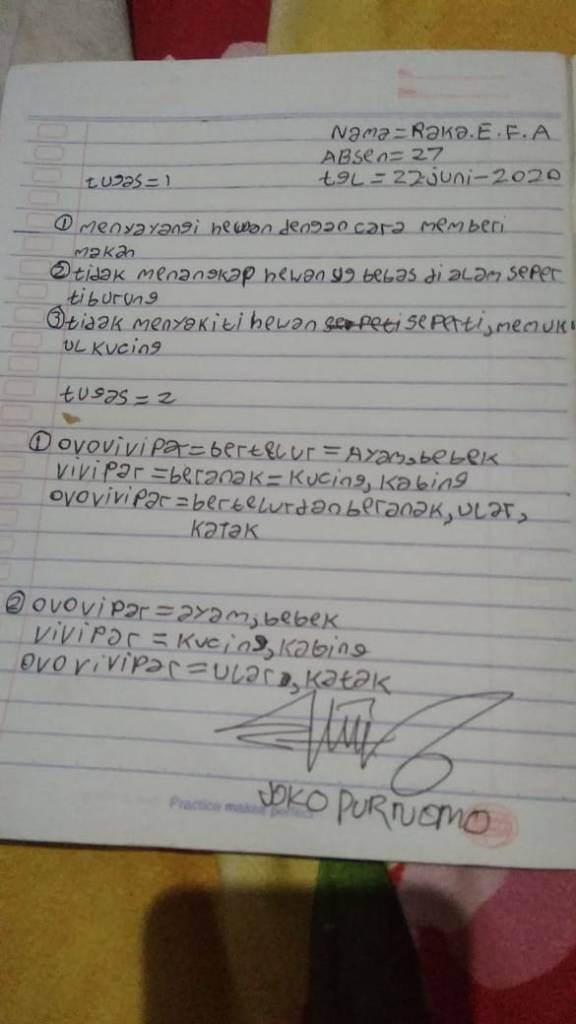 Nama = Raka.E.F.A
ABsen = 27
tugas = 1
tgl = 22 juni - 2020
① menyayangi hewan dengan cara memberi
makan
② tidak menangkap hewan yg bebas di alam seper
ti burung
③ tidak menyakiti hewan sepeti seperti, memuk
ul kucing
tugas = 2
① ovovivipar = bertelur = Ayam, bebek
vivipar = beranak = kucing, kabing
ovovivipar = bertelur dan beranak, ular,
katak
② ovovipar = ayam, bebek
vivipar = kucing, kabing
ovovivipar = ular, katak
JOKO PURNOMO
Practice makes perfect